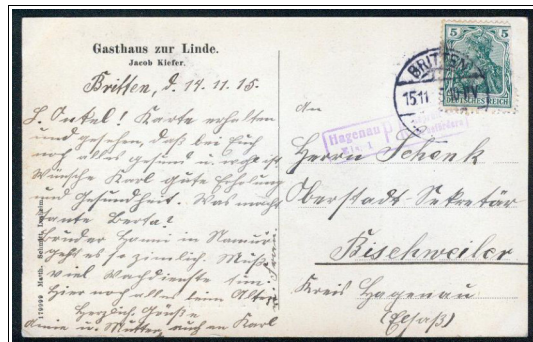 Gasthaus zur Linde.
Jacob Kiefer.
Britten, d. 14.11.15.
L. Onkel! Karte erhalten
und gesehen, daß bei Euch
noch alles gesund u. recht ist
Wünsche Karl gute Erholung
und Gesundheit. Was macht
Tante Berta?
Bruder in Namur
geht es so ziemlich. Muß
viel Wachdienste tun.
Hier noch alles beim Alten
Herzlich. Grüße
u. Mutter, auch an Karl
178099 Math. Schmitt,
BRITTEN
15.11
5 5
DEUTSCHES REICH
Hagenau
An
Herrn Schenk
Oberstadt-Sekretär
Bischweiler
Kreis Hagenau
(Elsaß)